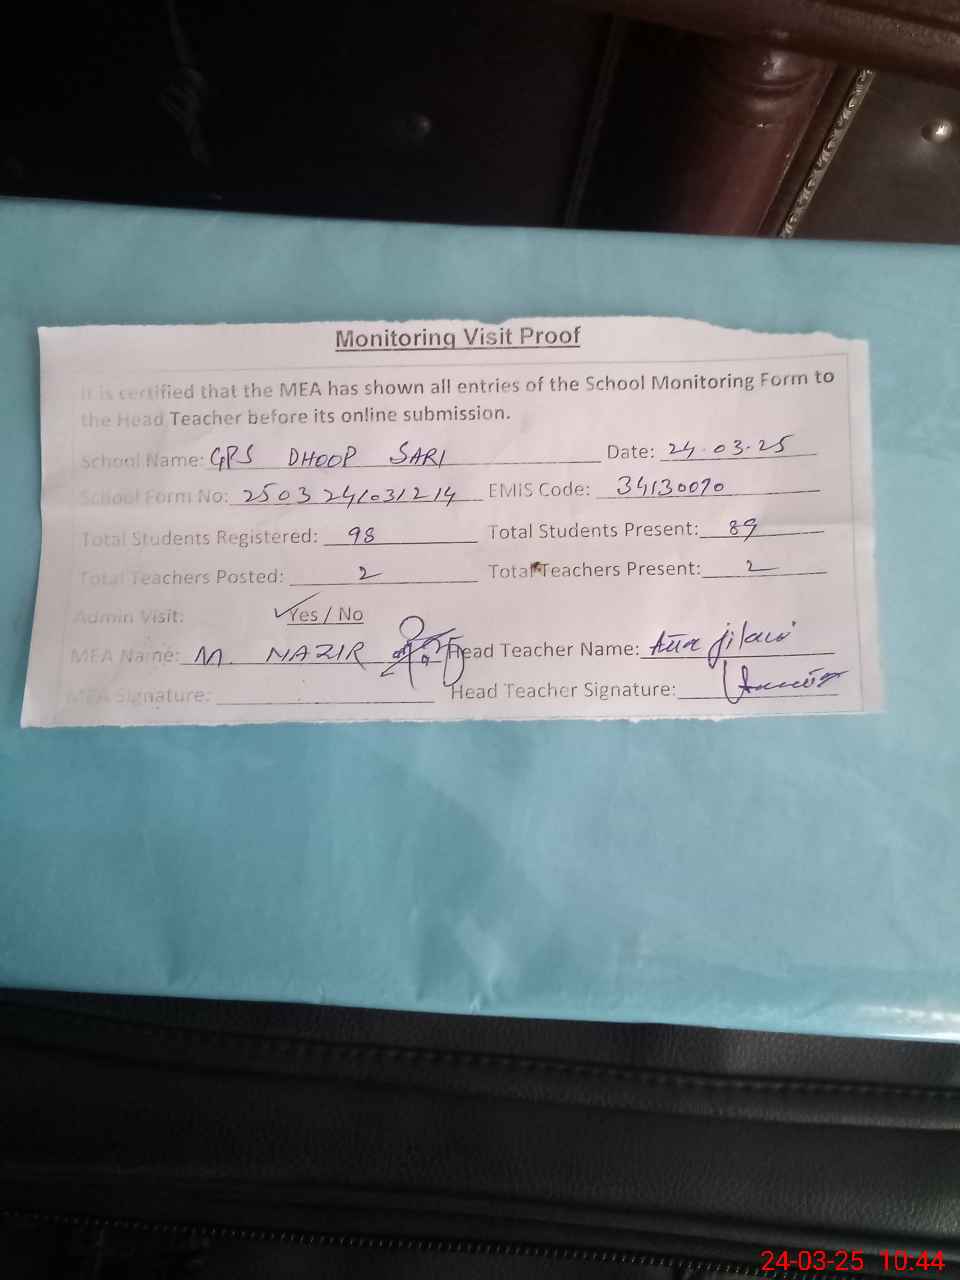 Monitoring Visit Proof
It is certified that the MEA has shown all entries of the School Monitoring Form to
the Head Teacher before its online submission.
School Name: GPS DHOOP SARI Date: 24-03-25
School Form No: 2503241031214 EMIS Code: 34130070
Total Students Registered: 98 Total Students Present: 89
Total Teachers Posted: 2 Total Teachers Present: 2
Admin Visit: Yes / No
MEA Name: M. NAZIR Head Teacher Name: jilani
MEA Signature: Head Teacher Signature:
24-03-25 10:44